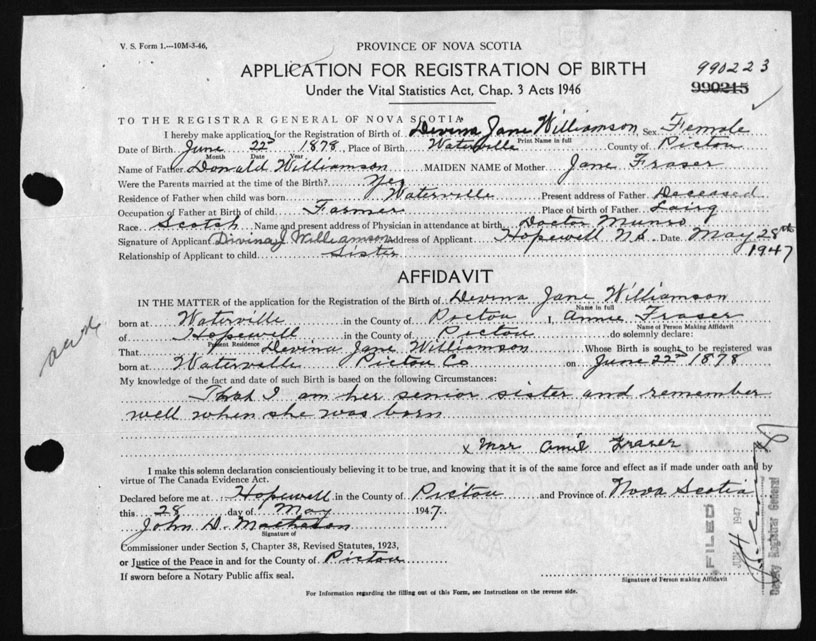 V. S. Form 1.—10M-3-46,
PROVINCE OF NOVA SCOTIA
APPLICATION FOR REGISTRATION OF BIRTH
990223
Under the Vital Statistics Act, Chap. 3 Acts 1946
990215
TO THE REGISTRAR GENERAL OF NOVA SCOTIA
I hereby make application for the Registration of Birth of Devina Jane Williamson, Sex Female
Print Name in full
Date of Birth June 22nd 1878, Place of Birth Waterville County of Pictou
Month Date Year
Name of Father Donald Williamson MAIDEN NAME of Mother Jane Fraser
Were the Parents married at the time of the Birth? Yes
Residence of Father when child was born Waterville Present address of Father Deceased
Occupation of Father at Birth of child Farmer Place of birth of Father Lairg
Race Scotch Name and present address of Physician in attendance at birth Doctor Munro
Signature of Applicant Divina J Williamson Address of Applicant Hopewell N.S. Date May 28th
1947
Relationship of Applicant to child Sister
AFFIDAVIT
IN THE MATTER of the application for the Registration of the Birth of Devina Jane Williamson
Name in full
born at Waterville in the County of Pictou I, Annie Fraser
Name of Person Making Affidavit
of Hopewell in the County of Pictou do solemnly declare:
Present Residence
That Devina Jane Williamson Whose Birth is sought to be registered was
born at Waterville Pictou Co on June 22nd 1878
My knowledge of the fact and date of such Birth is based on the following Circumstances:
That I am her senior sister and remember
well when she was born
x Mar Fraser
I make this solemn declaration conscientiously believing it to be true, and knowing that it is of the same force and effect as if made under oath and by
virtue of The Canada Evidence Act.
Declared before me at Hopewell in the County of Pictou and Province of Nova Scotia
this 28 day of May 1947.
John D. Matheson
Signature of
Commissioner under Section 5, Chapter 38, Revised Statutes, 1923,
or Justice of the Peace in and for the County of Pictou
If sworn before a Notary Public affix seal.
Signature of Person making Affidavit
FILED
1947
Deputy Registrar General
For Information regarding the filling out of this Form, see Instructions on the reverse side.